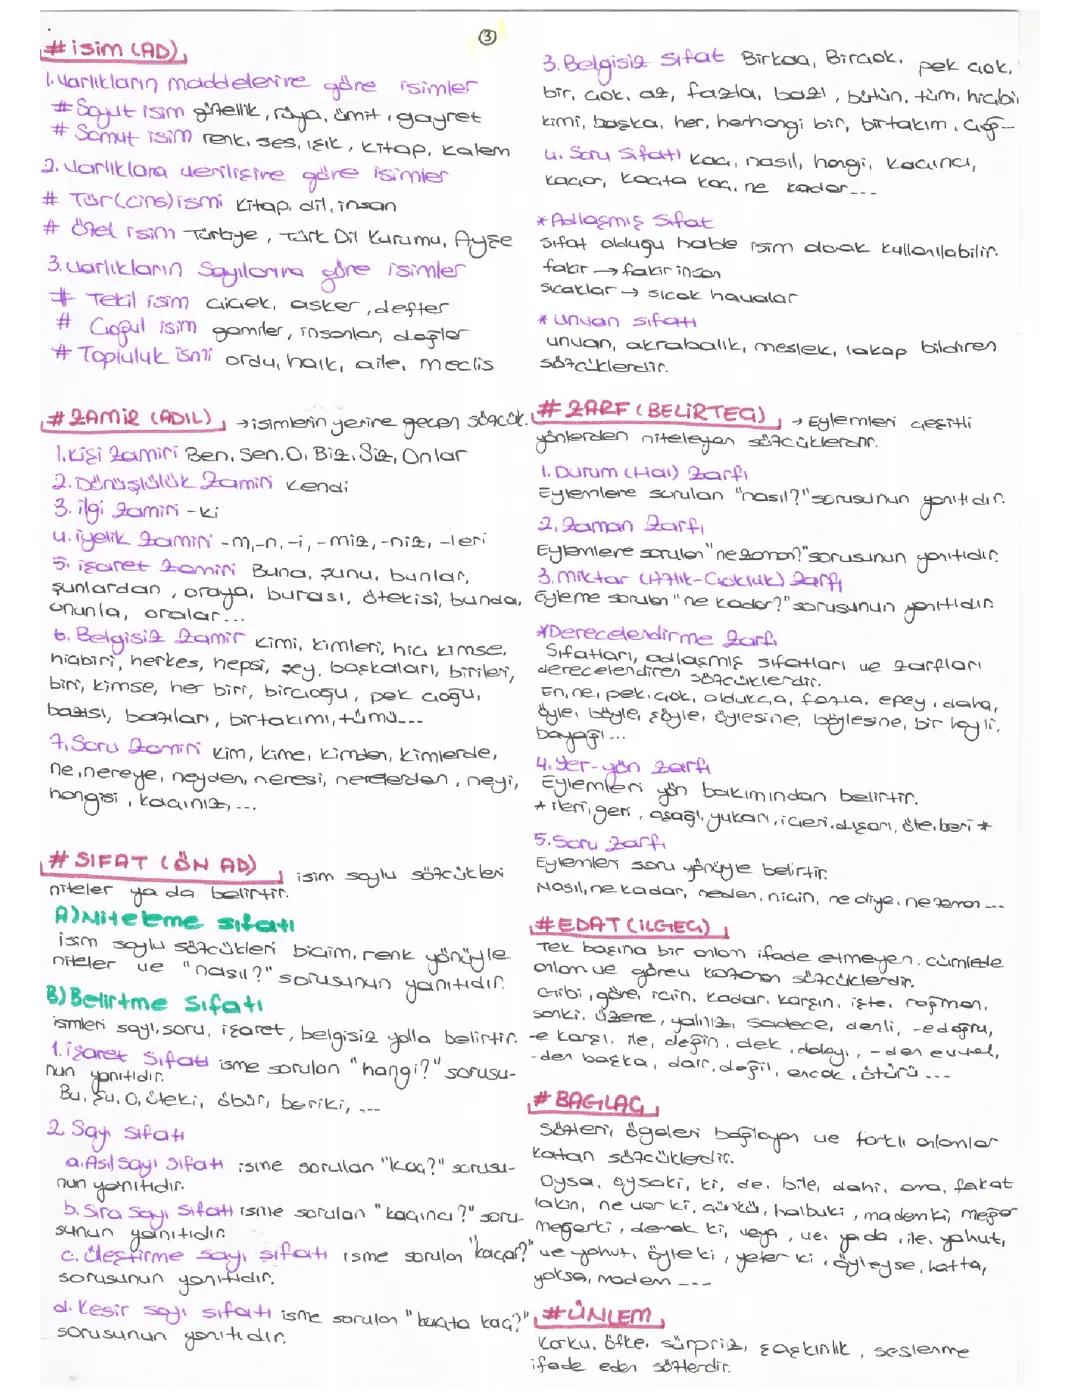 ③
# isim (AD)
1. Varlıkların maddelerine göre isimler
# Soyut isim güzellik, rüya, ümit, gayret
# Somut isim renk, ses, ışık, kitap, kalem
2. Varlıklara verilişine göre isimler
# Tür (cins) ismi kitap, dil, insan
# Özel isim Türkiye, Türk Dil Kurumu, Ayşe
3. Varlıkların Sayılarına göre isimler
# Tekil isim çiçek, asker, defter
# Çoğul isim gemiler, insanlar, dağlar
# Topluluk ismi ordu, halk, aile, meclis
# ZAMİR (ADIL) → isimlerin yerine geçen sözcük.
1. Kişi Zamiri Ben, Sen, O, Biz, Siz, Onlar
2. Dönüşlülük Zamiri kendi
3. ilgi Zamiri -ki
4. iyelik Zamiri -m, -n, -i, -miz, -niz, -leri
5. işaret Zamiri Buna, şunu, bunlar,
şunlardan, oraya, burası, ötekisi, bunda,
onunla, oralar...
6. Belgisiz Zamir kimi, kimleri, hiç kimse,
hiçbiri, herkes, hepsi, şey, başkaları, birileri,
biri, kimse, her biri, birçoğu, pek çoğu,
bazısı, bazıları, birtakımı, tümü...
7. Soru Zamiri kim, kime, kimden, kimlerde,
ne, nereye, neyden, neresi, nerelerden, neyi,
hangisi, kaçınız, ...
# SIFAT (ÖN AD) isim soylu sözcükleri
niteler ya da belirtir.
A) Niteleme sıfatı
isim soylu sözcükleri biçim, renk yönüyle
niteler ve "nasıl?" sorusunun yanıtıdır.
B) Belirtme Sıfatı
isimleri sayı, soru, işaret, belgisiz yolla belirtir.
1. işaret Sıfatı isme sorulan "hangi?" sorusu-
nun yanıtıdır.
Bu, Şu, O, öteki, öbür, beriki, ...
2 Sayı Sıfatı
a. Asıl Sayı Sıfatı isme sorulan "kaç?" sorusu-
nun yanıtıdır.
b. Sıra Sayı Sıfatı isme sorulan "kaçıncı?" soru-
sunun yanıtıdır
c. Üleştirme sayı sıfatı isme sorulan "kaçar?"
sorusunun yanıtıdır.
d. Kesir sayı sıfatı isme sorulan "kaçta kaç?"
sorusunun yanıtıdır.
3. Belgisiz Sıfat Birkaç, Birçok, pek çok,
bir, çok, az, fazla, bazı, bütün, tüm, hiçbir
kimi, başka, her, herhangi bir, birtakım, çoğ-
4. Soru Sıfatı kaç, nasıl, hangi, kaçıncı,
kaçar, kaçta kaç, ne kadar...
* Adlaşmış Sıfat
Sıfat olduğu halde isim olarak kullanılabilir.
fakir → fakir insan
sıcaklar → sıcak havalar
* Unvan sıfatı
unvan, akrabalık, meslek, lakap bildiren
sözcüklerdir.
# ZARF (BELİRTEÇ) → Eylemleri çeşitli
yönlerden niteleyen sözcüklerdir.
1. Durum (Hal) Zarfı
Eylemlere sorulan "nasıl?" sorusunun yanıtıdır.
2. Zaman Zarfı
Eylemlere sorulan "ne zaman?" sorusunun yanıtıdır.
3. Miktar (Azlık-Çokluk) Zarfı
Eyleme sorulan "ne kadar?" sorusunun yanıtıdır
*Derecelendirme Zarfı
Sıfatları, adlaşmış sıfatları ve zarfları
derecelendiren sözcüklerdir.
En, ne, pek, çok, oldukça, fazla, epey, daha,
öyle, böyle, şöyle, öylesine, böylesine, bir hayli,
bayağı...
4. Yer-yön zarfı
Eylemleri yön bakımından belirtir.
* ileri, geri, aşağı, yukarı, içeri, dışarı, öte, beri *
5. Soru zarfı
Eylemleri soru yönüyle belirtir.
Nasıl, ne kadar, neden, niçin, ne diye, ne zaman ...
# EDAT (İLGEÇ)
Tek başına bir anlam ifade etmeyen, cümlede
anlam ve görev kazanan sözcüklerdir.
Gibi, göre, için, kadar, karşın, işte, rağmen,
sanki, üzere, yalnız, sadece, denli, -e doğru,
-e karşı, ile, değin, dek, dolayı, -den evvel,
-den başka, dair, değil, ancak, ötürü ...
# BAĞLAÇ
Sözleri, ögeleri bağlayan ve farklı anlamlar
katan sözcüklerdir.
Oysa, oysaki, ki, de, bile, dahi, ama, fakat
lakin, ne var ki, çünkü, halbuki, mademki, meğer
megerki, demek ki, veya, ve, ya da, ile, yahut,
ve yahut, öyle ki, yeter ki, öyleyse, hatta,
yoksa, madem ...
# ÜNLEM
Korku, öfke, sürpriz, şaşkınlık, seslenme
ifade eden sözlerdir.